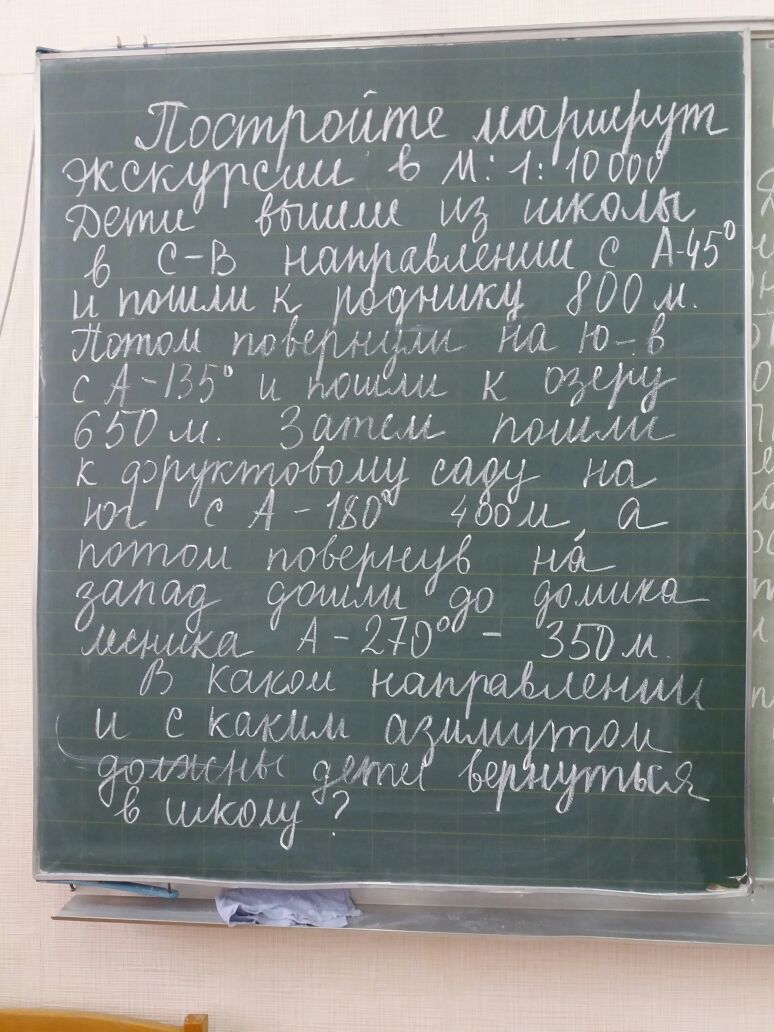 Постройте маршрут
экскурсии в М: 1: 10 000
Дети вышли из школы
в С-В направлении с А-45°
и пошли к роднику 800 м.
Потом повернули на ю-в
с А-135° и пошли к озеру
650 м. Затем пошли
к фруктовому саду на
юг с А-180° 400 м, а
потом повернув на
запад дошли до домика
лесника А-270° - 350 м.
В каком направлении
и с каким азимутом
должны дети вернуться
в школу?